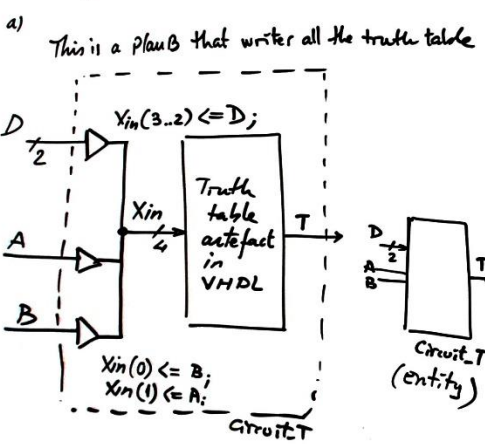 a)
This is a plan B that writer all the truth table
Xin(3..2) <= D;
D
2
Xin
4
Truth
table
artefact
in
VHDL
T
A
B
Xin(0) <= B;
Xin(1) <= A;
Circuit_T
D
2
A
B
T
Circuit_T
(entity)